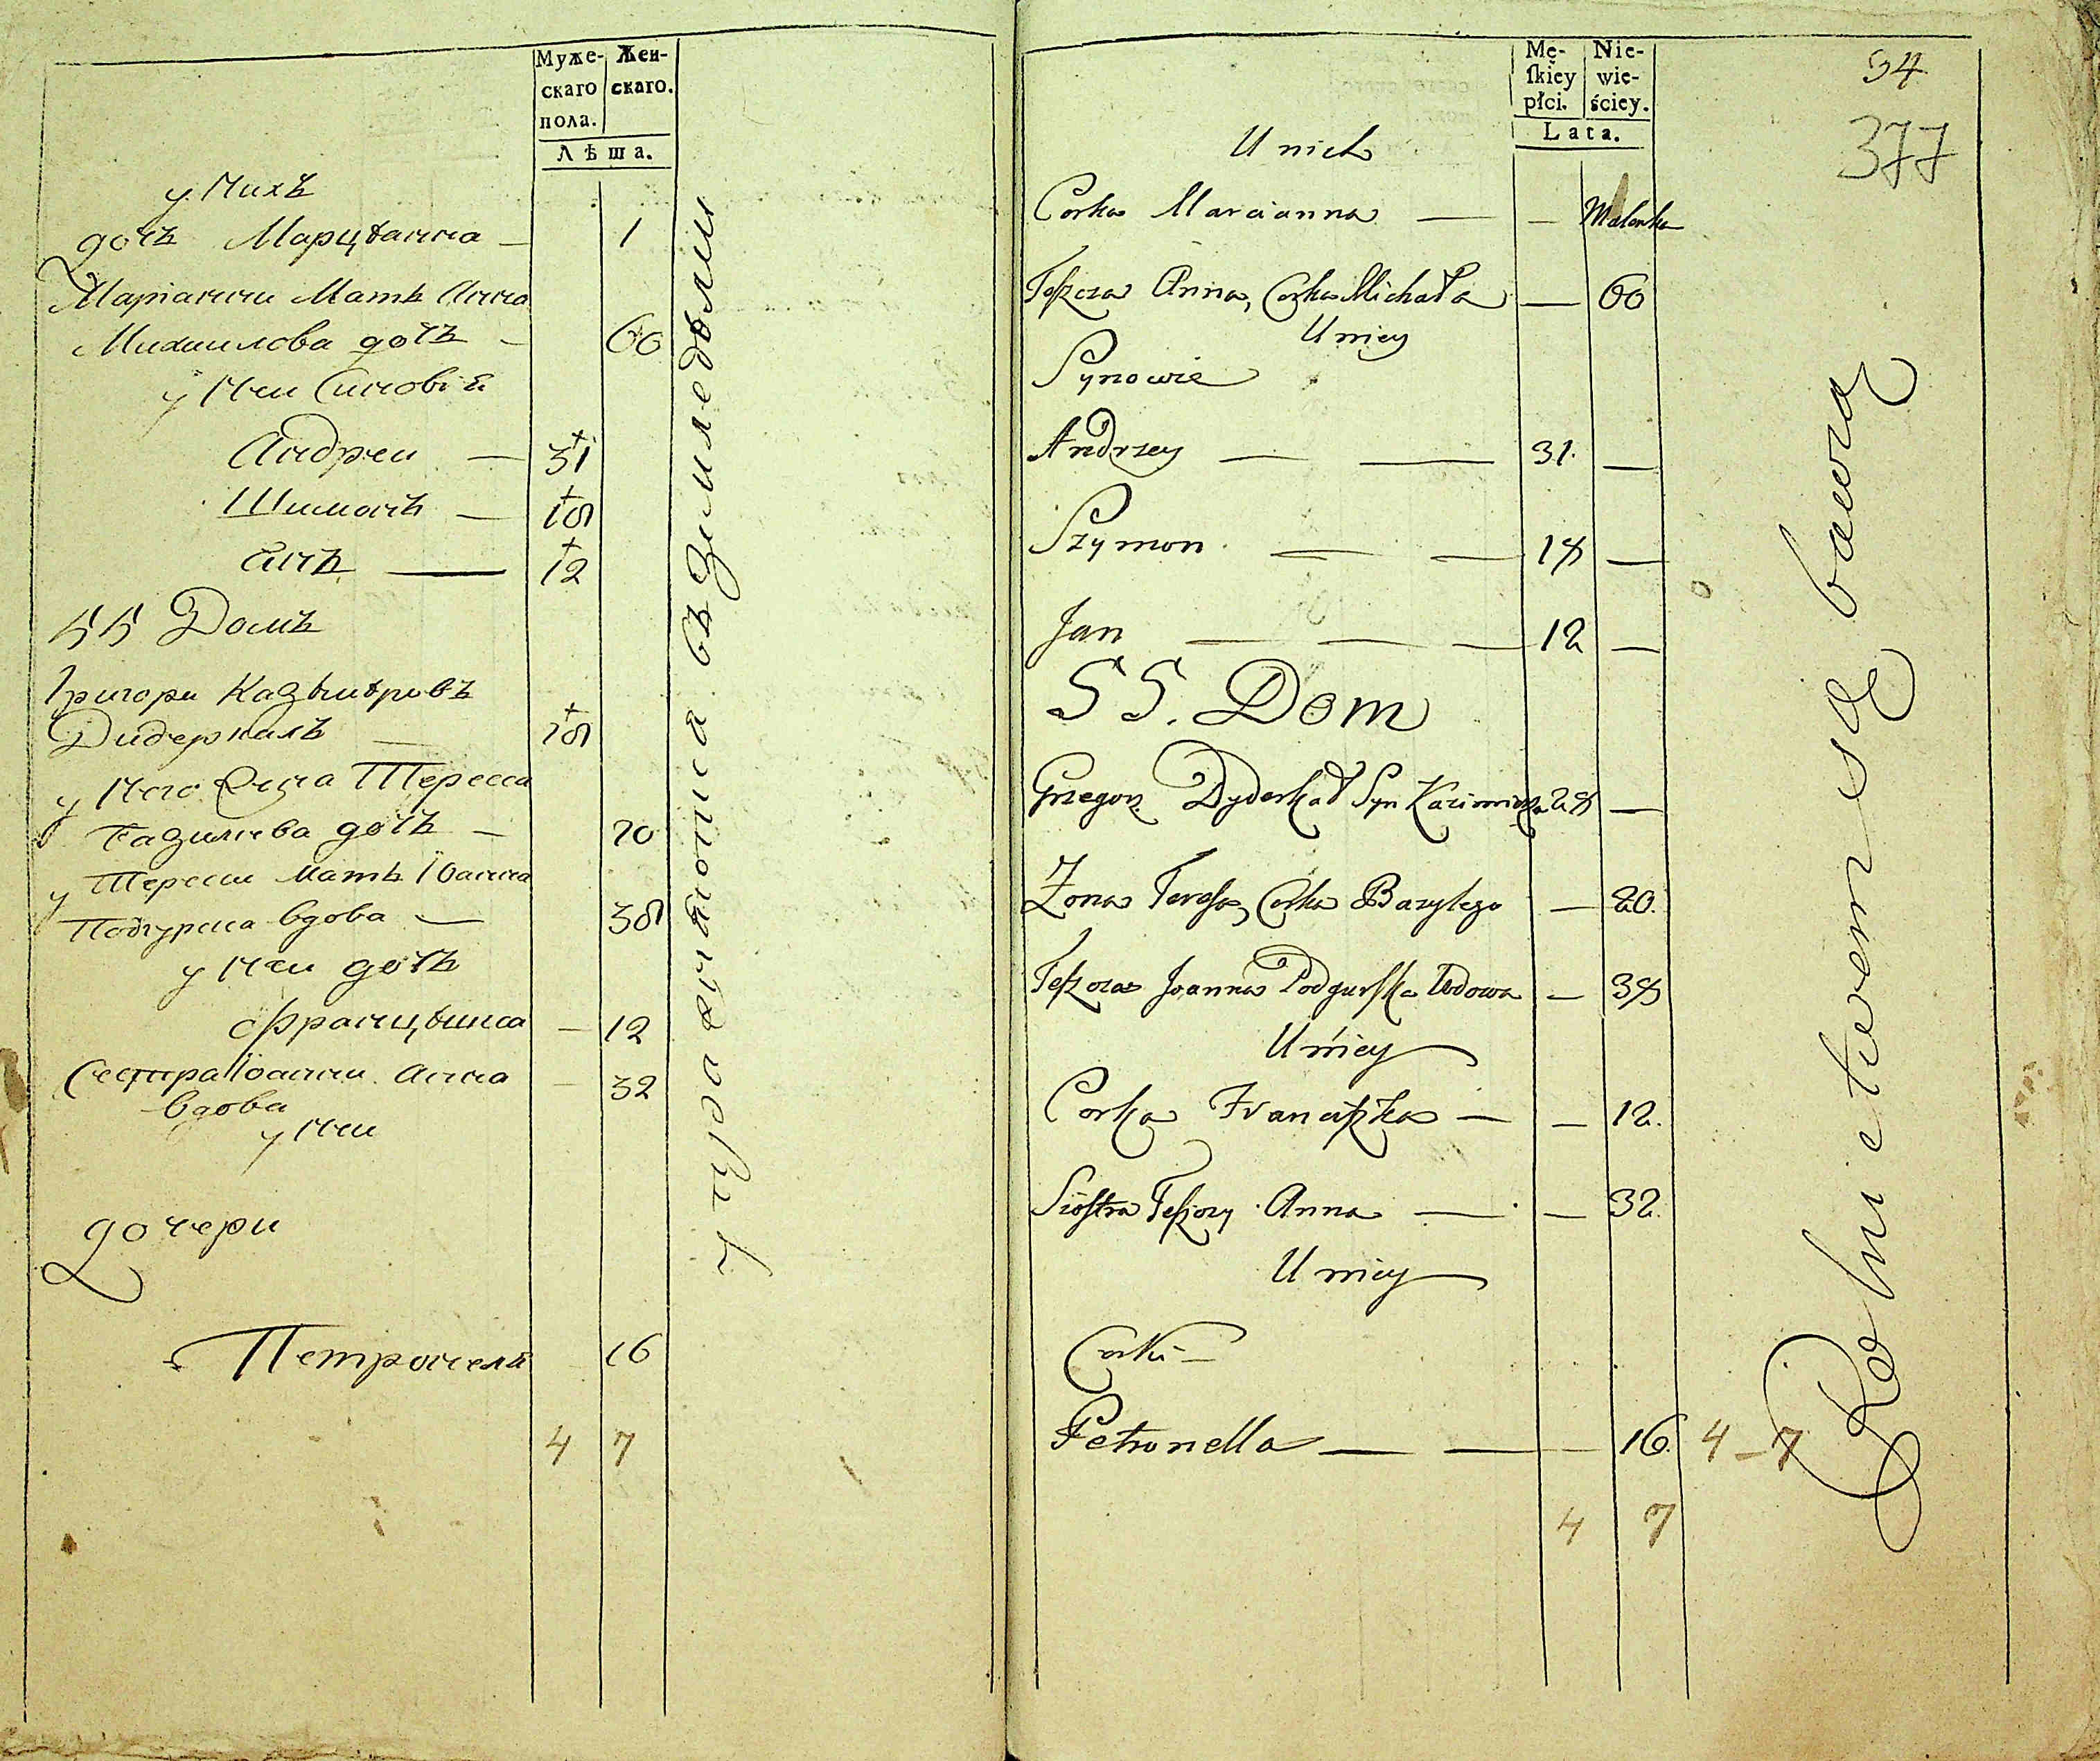 Муже-
скаго
пола.
Жен-
скаго.
Лѣта.
у нихъ
дочъ Марцѣанна — 1
Маріанни Мать Анна
Михаилова дочъ — 60
у неи Синовіе
Андреи — 31
Шимонъ — 18
Янъ — 12
55 Домъ
Григори Казѣмѣровъ
Дидеркалъ — 28
у него Жена Тересса
Базилиева дочъ — 20
у Тересси мать Іоанна
Подгурска вдова — 38
у неи дочъ
Францѣшка — 12
Сестра Іоанни Анна — 32
вдова
у неи
дочери
Петронеля 16
4 7
упражняются въ Земледѣлии
Mę-
skiey
płci.
Nie-
wie-
ściey.
Lata.
94
377
U nich
Corka Marcianna — — Malenka
Teszcza Anna, Corka Michała — 60
U niey
Synowie
Andrzey — — 31. —
Szymon — — 18 —
Jan — — — 12 —
55. Dom
Grzegorz Dyderkał Syn Kazimierza 28 —
Żona Teressa, Corka Bazylego — 20.
Teszcza Joanna Podgurska Wdowa — 38
U niey
Corka Franciszka — — 12.
Siostra Teszczy Anna — — 32.
U niey
Corki —
Petronella — — — 16. 4 – 7
4 7
Rolnictwem się bawią